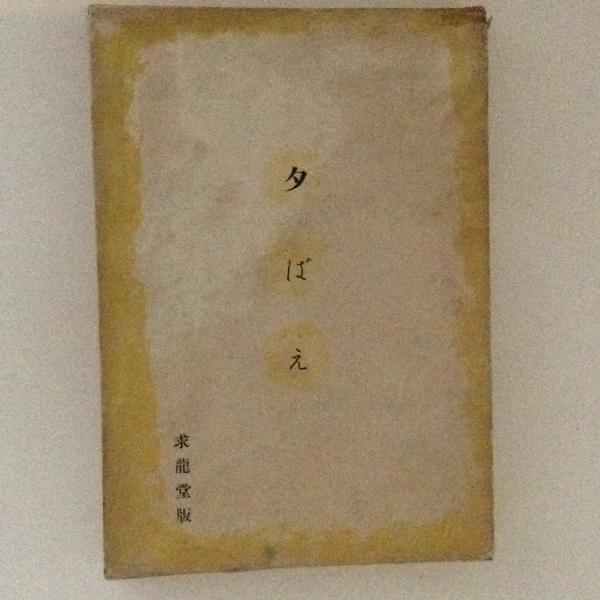 夕ばえ
求龍堂版